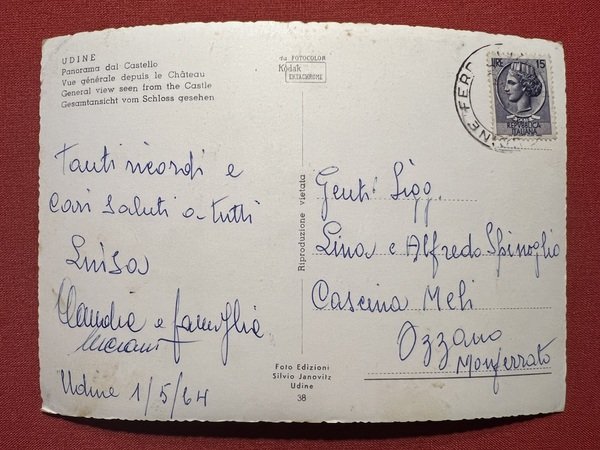 UDINE
Panorama dal Castello
Vue générale depuis le Château
General view seen from the Castle
Gesamtansicht vom Schloss gesehen
da FOTOCOLOR
Kodak
EKTACHROME
LIRE 15
REPUBBLICA
ITALIANA
Tanti ricordi e
Cari Saluti a tutti
Luisa
Claudia e famiglia
Udine 1/5/64
Riproduzione vietata
Gent. Sigg.
Lina e Alfredo Spinoglio
Cascina Meli
Ozzano
Monferrato
Foto Edizioni
Silvio Janovitz
Udine
38